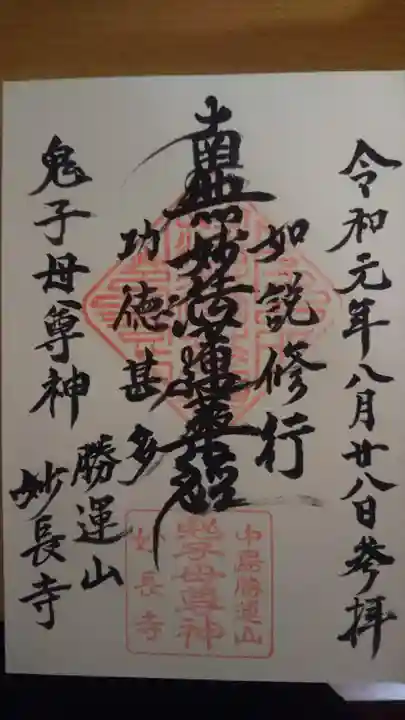 令和元年八月廿八日参拝
如説修行
南無妙法蓮華経
功徳甚多
鬼子母尊神
勝運山
妙長寺
中島勝運山
鬼子母尊神
妙長寺